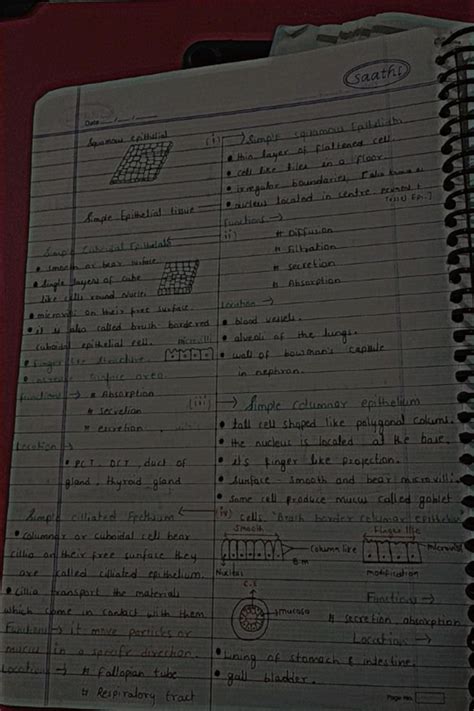 saathi
Date
Squamous epithelial
Simple Epithelial tissue
(i) → Simple squamous Epithelium
• thin layer of flattened cell.
• cell like tiles in a floor.
• irregular boundaries.
• nucleus located in centre
Functions →
# Diffusion
# Filtration
# secretion
# Absorption
Location →
• blood vessels.
• alveoli of the lungs.
• wall of bowman's capsule
in nephron.
ii)
Simple Cuboidal Epithelium
• smooth or bear surface
• Single layers of cube
like cells round nuclei
• microvilli on their free surface.
• it is also called brush bordered
cuboidal epithelial cell.
microvilli
• finger like structure.
• increase surface area
functions → # Absorption
# secretion
# excretion
Location →
• PCT, DCT, duct of
gland, thyroid gland
(iii) → Simple columnar epithelium
• tall cell shaped like polygonal colums.
• the nucleus is located at the base.
• its finger like projection.
• Surface - smooth and bear microvilli.
• Some cell produce mucus called goblet
cells "Brush border columnar epithelium"
Smooth
Finger like
column like
B m
Nucleus
microvilli
modification
C.S
mucosa
Functions →
# secretion, absorption
Locations →
• lining of stomach & intestine.
• gall bladder.
iv)
Simple ciliated Epithelium
• columnar or cuboidal cell bear
cilia on their free surface they
are called ciliated epithelium.
• cilia transport the materials
which come in contact with them
Functions → it move particles or
mucus in a specific direction.
Locations → # Fallopian tube
# Respiratory tract
Page No.